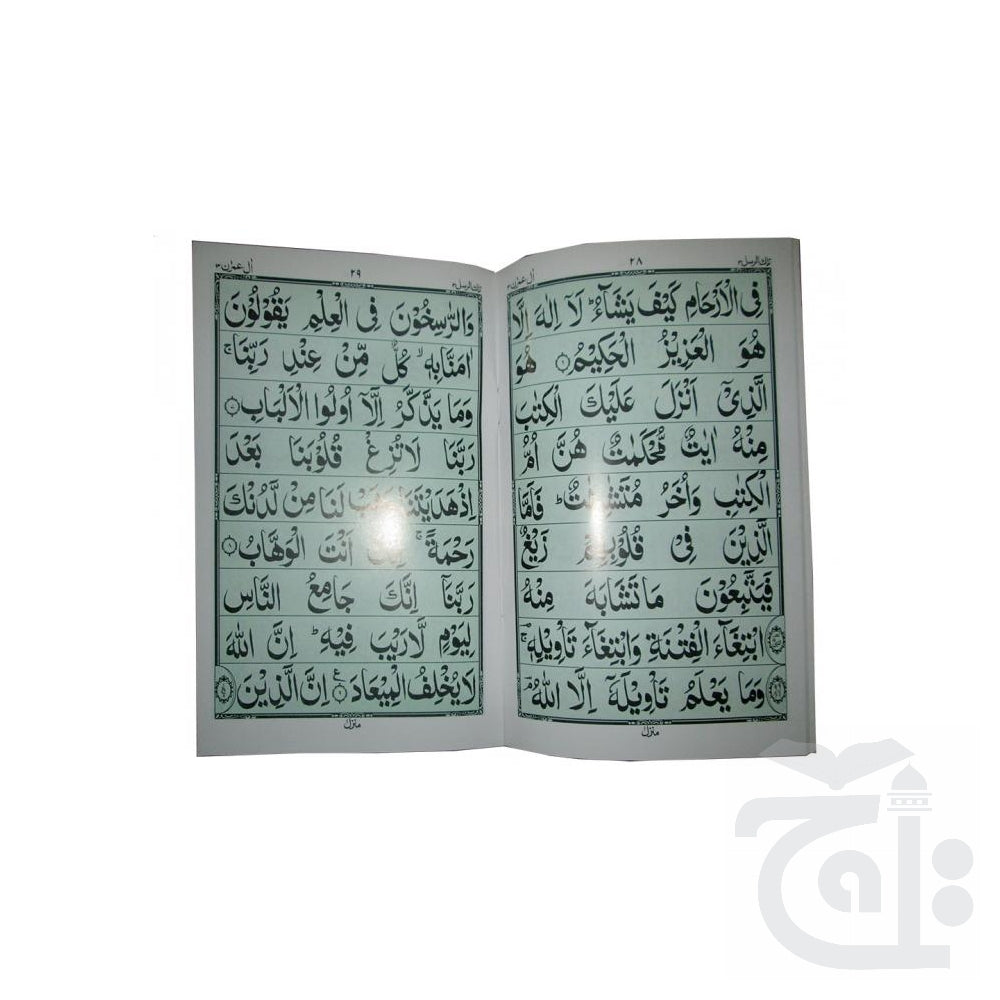 تلك الرسل ٣
٢٨
اٰل عمرٰن ٣
فِی الْاَرْحَامِ كَیْفَ یَشَآءُ ؕ لَاۤ اِلٰهَ اِلَّا
هُوَ الْعَزِیْزُ الْحَكِیْمُ ۝۶ هُوَ
الَّذِیْۤ اَنْزَلَ عَلَیْكَ الْكِتٰبَ
مِنْهُ اٰیٰتٌ مُّحْكَمٰتٌ هُنَّ اُمُّ
الْكِتٰبِ وَاُخَرُ مُتَشٰبِهٰتٌ ؕ فَاَمَّا
الَّذِیْنَ فِیْ قُلُوْبِهِمْ زَیْغٌ
فَیَتَّبِعُوْنَ مَا تَشَابَهَ مِنْهُ
ابْتِغَآءَ الْفِتْنَةِ وَابْتِغَآءَ تَاْوِیْلِهٖ ۚ
وَمَا یَعْلَمُ تَاْوِیْلَهٗۤ اِلَّا اللّٰهُ ۘ
منزل
تلك الرسل ٣
٢٩
اٰل عمرٰن ٣
وَالرّٰسِخُوْنَ فِی الْعِلْمِ یَقُوْلُوْنَ
اٰمَنَّا بِهٖ ۙ كُلٌّ مِّنْ عِنْدِ رَبِّنَا ۚ
وَمَا یَذَّكَّرُ اِلَّاۤ اُولُوا الْاَلْبَابِ ۝۷
رَبَّنَا لَا تُزِغْ قُلُوْبَنَا بَعْدَ
اِذْ هَدَیْتَنَا وَهَبْ لَنَا مِنْ لَّدُنْكَ
رَحْمَةً ۚ اِنَّكَ اَنْتَ الْوَهَّابُ ۝۸
رَبَّنَاۤ اِنَّكَ جَامِعُ النَّاسِ
لِیَوْمٍ لَّا رَیْبَ فِیْهِ ؕ اِنَّ اللّٰهَ
لَا یُخْلِفُ الْمِیْعَادَ ۝۹ اِنَّ الَّذِیْنَ
منزل